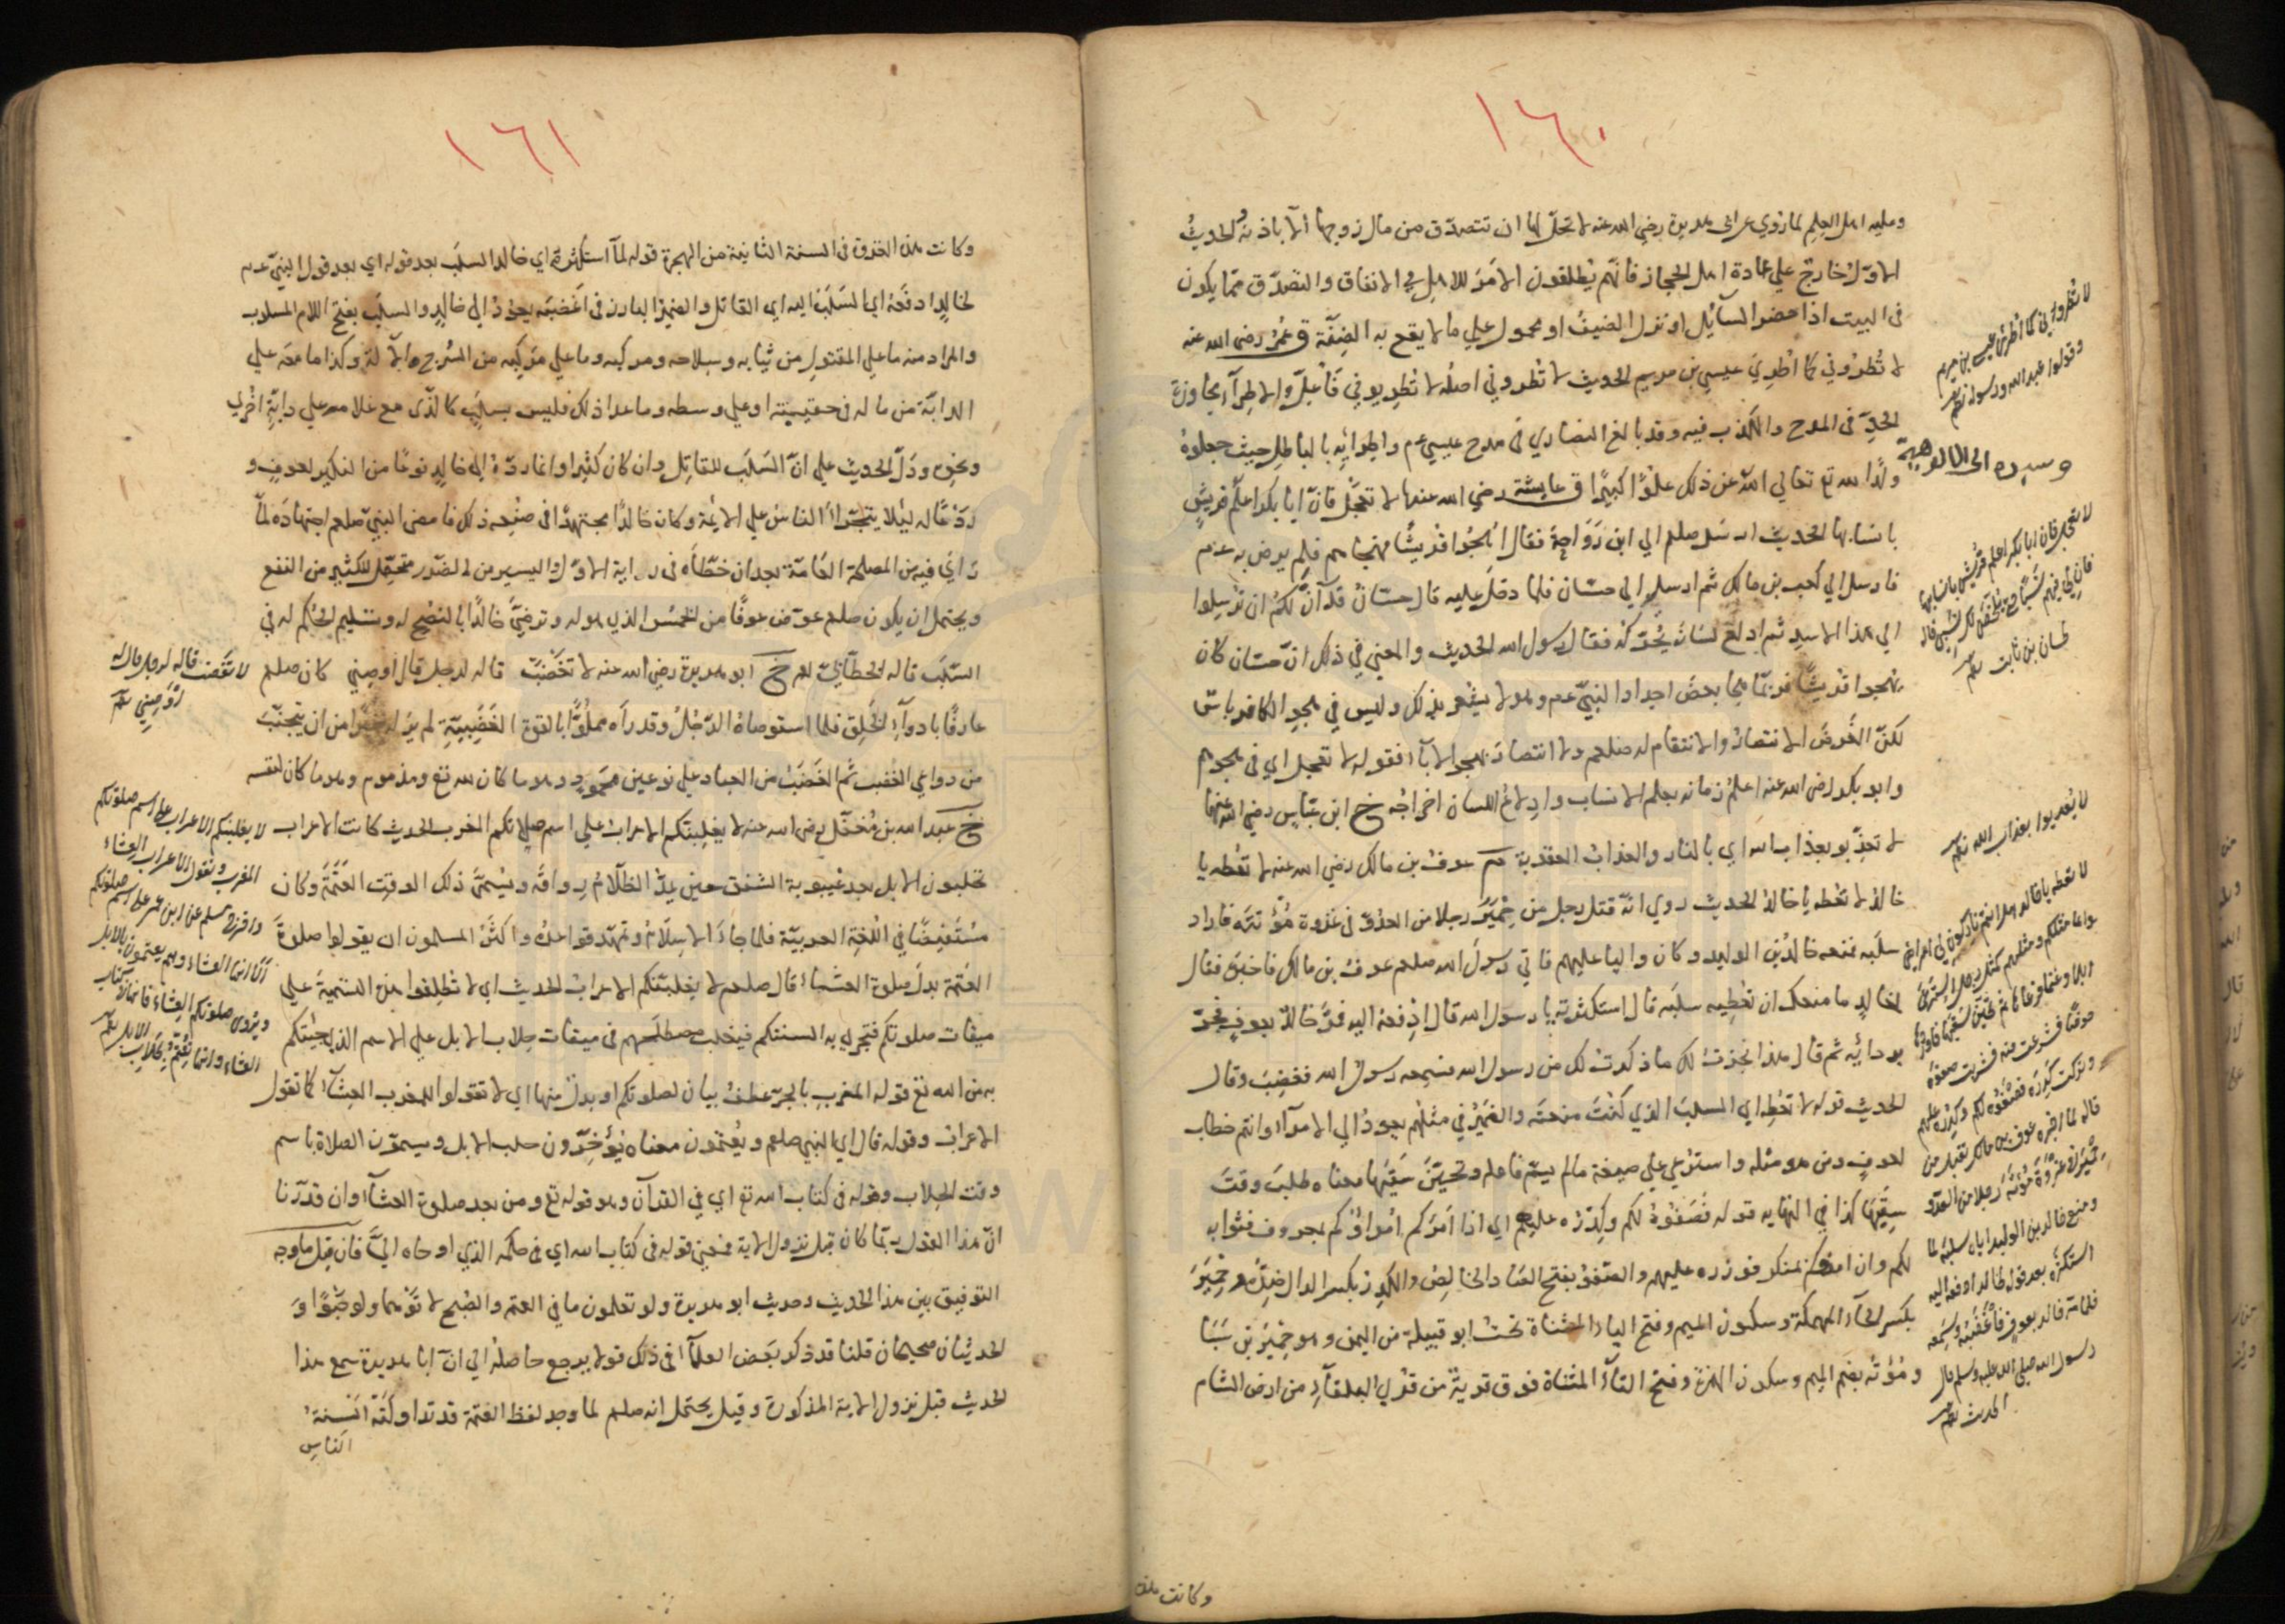 ١٦٠
وعليه اهل العلم لما روي عن ابي هريرة رضي الله عنه لا تحلّ لها ان تتصدّق من مال زوجها الّا باذنه والحديث
الاوّل خارج علي عادة اهل الحجاز فانّهم يُطلقون الامر للاهل في الانفاق والتصدّق ممّا يكون
في البيت اذا حضر السائل او نزل الضيف او محمول علي ما لا يقع به الضنّة ق عمر رضي الله عنه
لا تُطروني كما اُطري عيسي بن مريم الحديث لا تطروني اصله لا تُطريوني فاُعلّ والاطراء مجاوزة
الحدّ في المدح والكذب فيه وقد بالغ النصاري في مدح عيسي عم واطرائه بالباطل حيث جعلوه
ولدًا لله تع تعالي الله عن ذلك علوًّا كبيرًا ق عايشة رضي الله عنها لا تعجّل فانّ ابا بكر اعلم قريش
بانسابها الحديث ارسل صلعم الي ابن رَوَاحة فقال اُهجُوا قريشًا فهجاهم فلم يرض به عم
فارسل الي كعب بن مالك ثم ارسل الي حسّان فلما دخل عليه قال حسّان قد آن لكم ان ترسلوا
الي هذا الاسد ثم ادلع لسانه يحرّكه فقال رسول الله الحديث والمعني في ذلك انّ حسّان كان
يهجوا قريشًا فربّما هجا بعض اجداد النبيّ عم وهو لا يشعر بذلك وليس في هجو الكافر باس
لكنّ الغرض الانتصار والانتقام له صلعم ولا انتصار بهجو الآباء فقوله لا تعجل اي في هجوهم
وابو بكر رضي الله عنه اعلم زمانه بعلم الانساب وادلاع اللسان اخراجه خ ابن عبّاس رضي الله عنهما
لا تعذّبو بعذاب الله اي بالنار والعذاب العقوبة م عوف بن مالك رضي الله عنه لا تعطه يا
خالد لا تعطه يا خالد الحديث روي انّه قتل رجل من حِمْيَر رجلا من العدوّ في غزوة مُؤْتَه فاراد
سلبه فمنعه خالد بن الوليد وكان واليا عليهم فاتي رسول الله صلعم عوف بن مالك فاخبره فقال
لخالد ما منعك ان تعطيه سلبه قال استكثرته يا رسول الله قال اِدفعه اليه فمرّ خالد بعوف فجرّ
بردائه ثم قال هذا انجزت لك ما ذكرت لك من رسول الله فسمعه رسول الله فغضب وقال
الحديث قوله لا تعطه اي السلب الذي كُنتَ منعته والضمير في مثلهم يعود الي الامراء وانتم خطاب
لعوف ومن هو مثله واسترعي علي صيغة ما لم يسمّ فاعله وتحيّن سَقيها معناه طلب وقت
سقيها كذا في النهايه قوله فصَفوُه لكم وكِدره عليهم اي اذا امركم امراؤكم بمعروف فثوابه
لكم وان امروكم بمنكر فوزره عليهم والصفو بفتح الصاد الخالص والكدر بكسر الدال ضدّه وحِمْيَر
بكسر الحاء المهملة وسكون الميم وفتح الياء المثناة تحت ابو قبيلة من اليمن وهو حِمْيَر بن سَبَا
ومُؤته بضم الميم وسكون الهمزة وفتح التاء المثناة فوق قرية من قري البلقاء من ارض الشام
وكانت هذه
لا تُطروني كما اُطري عيسي بن مريم
وقولوا عبد الله ورسوله
وسبوه الي الالوهية
لا تعجل فان ابا بكر اعلم قريش بانسابها
فان لي فيهم نسبًا حتي يلخّص لك نسبي قاله
لحسان بن ثابت
لا تعذبوا بعذاب الله
لا تعطه يا خالد هل انتم تاركون لي امرائي
انما مثلكم ومثلهم كمثل رجل استرعي
ابلا او غنما فرعاها ثم تحيّن سقيها فاوردها
حوضًا فشرعت فيه فشربت صفوه
وتركت كدره فصفوه لكم وكدره عليهم
قاله لما اخبره عوف بن مالك بقتل من
حمير في غزوة مؤته رجلا من العدو
ومنع خالد بن الوليد اياه سلبه لما
استكثره بعد قوله لخالد ادفعه اليه
فلما مرّ خالد بعوف فاغضبه وسمعه
رسول الله صلي الله عليه وسلم قال
الحديث
١٦١
وكانت هذه الغزوة في السنة الثامنة من الهجرة قوله لمّا استكثره اي خالد السلب بعد قوله اي بعد قول النبيّ عم
لخالد ادفعه اي السلب اليه اي القاتل والضمير البارز في اغضبه يعود الي خالد والسلب بفتح اللام المسلوب
والمراد منه ما علي المقتول من ثيابه وسلاحه ومركبه وما علي مركبه من السرج والآلة وكذا ما معه علي
الدابّة من ماله في حقيبته او علي وسطه وما عدا ذلك فليس بسلب كالذي مع غلامه علي دابّة اخري
ونحوه ودلّ الحديث علي انّ السلب للقاتل وان كان كثيرا وانما ردّه الي خالد نوعًا من النكير لعوف و
ردعًا له ليلا يتجرّأ الناس علي الايمّة وكان خالد مجتهدًا في صنعه ذلك فامضي النبيّ صلعم اجتهاده لمّا
رأي فيه من المصلحة العامّة بعد ان خطّأه في رايه الاوّل واليسير من الضرر متحمّل للكثير من النفع
ويحتمل ان يكون صلعم عوّض عوفًا من الخمس الذي هو له وترضيّ خالدًا بالنصح له وتسليم الحكم له في
السلب قاله الخطّابيّ خ ابو هريرة رضي الله عنه لا تغضب قاله لرجل قال اوصني كان صلعم
عارفًا بادواء الخلق فلما استوصاه الرجل وقد رآه مملوًّا بالقوة الغضبيّة لم ير له خيرًا من ان يتجنّب
من دواعي الغضب ثم الغضب من العباد علي نوعين محمود وهو ما كان لله تع ومذموم وهو ما كان لنفسه
خ عبد الله بن مُغفّل رضي الله عنه لا يغلبنّكم الاعراب علي اسم صلاتكم المغرب الحديث كانت الاعراب
تحلبون الابل بعد غيبوبة الشفق حين يمدّ الظلام رواقه ويسمّي ذلك الوقت العتمة وكان
مستفيضًا في اللغة العربيّة فلما جاء الاسلام وتمهّد قواعده واكثر المسلمون ان يقولوا صلوة
العتمة بدل صلوة العشاء قال صلعم لا يغلبنّكم الاعراب الحديث اي لا تطلقوا هذه التسمية علي
ميقات صلوتكم فتجري به السنتكم فيغلب مصطلحهم في ميقات حلاب الابل علي الاسم الذي جئتكم
به من الله تع قوله المغرب بالجرّ عطف بيان لصلوتكم او بدل منها اي لا تقولوا للمغرب العشاء كما تقول
الاعراب وقوله قال اي النبي صلعم ويُعتمون معناه يؤخّرون حلب الابل ويسمّون الصلاة باسم
وقت الحلاب وقوله في كتاب الله تع اي في القرآن وهو قوله تع ومن بعد صلوة العشاء وان قدّرنا
انّ هذا القول ربّما كان قبل نزول الاية فمعني قوله في كتاب الله اي في حكمه الذي اوحاه اليّ فان قيل ما وجه
التوفيق بين هذا الحديث وحديث ابو هريرة ولو تعلمون ما في العتم والصبح لاتوهما ولو حبوًا و
الحديثان صحيحان قلنا قد ذكر بعض العلماء في ذلك قولا يرجع حاصله الي انّ ابا هريرة سمع هذا
الحديث قبل نزول الاية المذكورة وقيل يحتمل انه صلعم لما وجد لفظ العتمة قد تداولته السنة
الناس
لا تغضب قاله لرجل قال له
اوصني
لا يغلبنكم الاعراب علي اسم صلوتكم
المغرب وتقول الاعراب العشاء
واخرج مسلم عن ابن عمر علي اسم صلوتكم
الا انها العشاء وهم يعتمون بالابل
ويروي صلوتكم العشاء فانها في كتاب
العشاء وانها تعتم بحلاب الابل